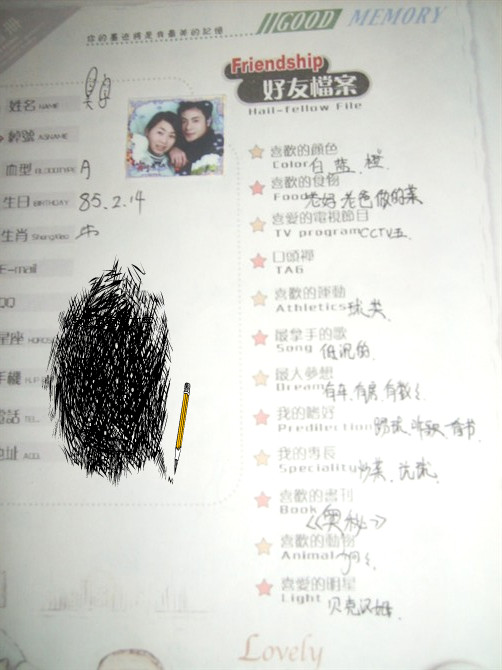 GOOD MEMORY
你的墨迹將是我最美的記憶
Friendship
好友檔案
Hail-fellow File
姓名 NAME
綽號 ASNAME
血型 BLOODTYPE A
生日 BIRTHDAY 85.2.14
生肖 ShengXiao 牛
E-mail
QQ
星座 HOROS
手機 H.P
電話 TEL.
地址 ADD.
喜歡的顏色
Color 白 蓝、橙
喜歡的食物
Food 老妈老爸做的菜
喜愛的電視節目
TV program CCTV五
口頭禪
TAG
喜歡的運動
Athletics 球类
最拿手的歌
Song 低沉的
最大夢想
Dream 有车.有房.有
我的嗜好
Predilection 看书
我的專長
Speciality 炒菜、
喜歡的書刊
Book
《奥秘》
喜歡的動物
Animal 狗狗
喜愛的明星
Light 贝克汉姆
Lovely